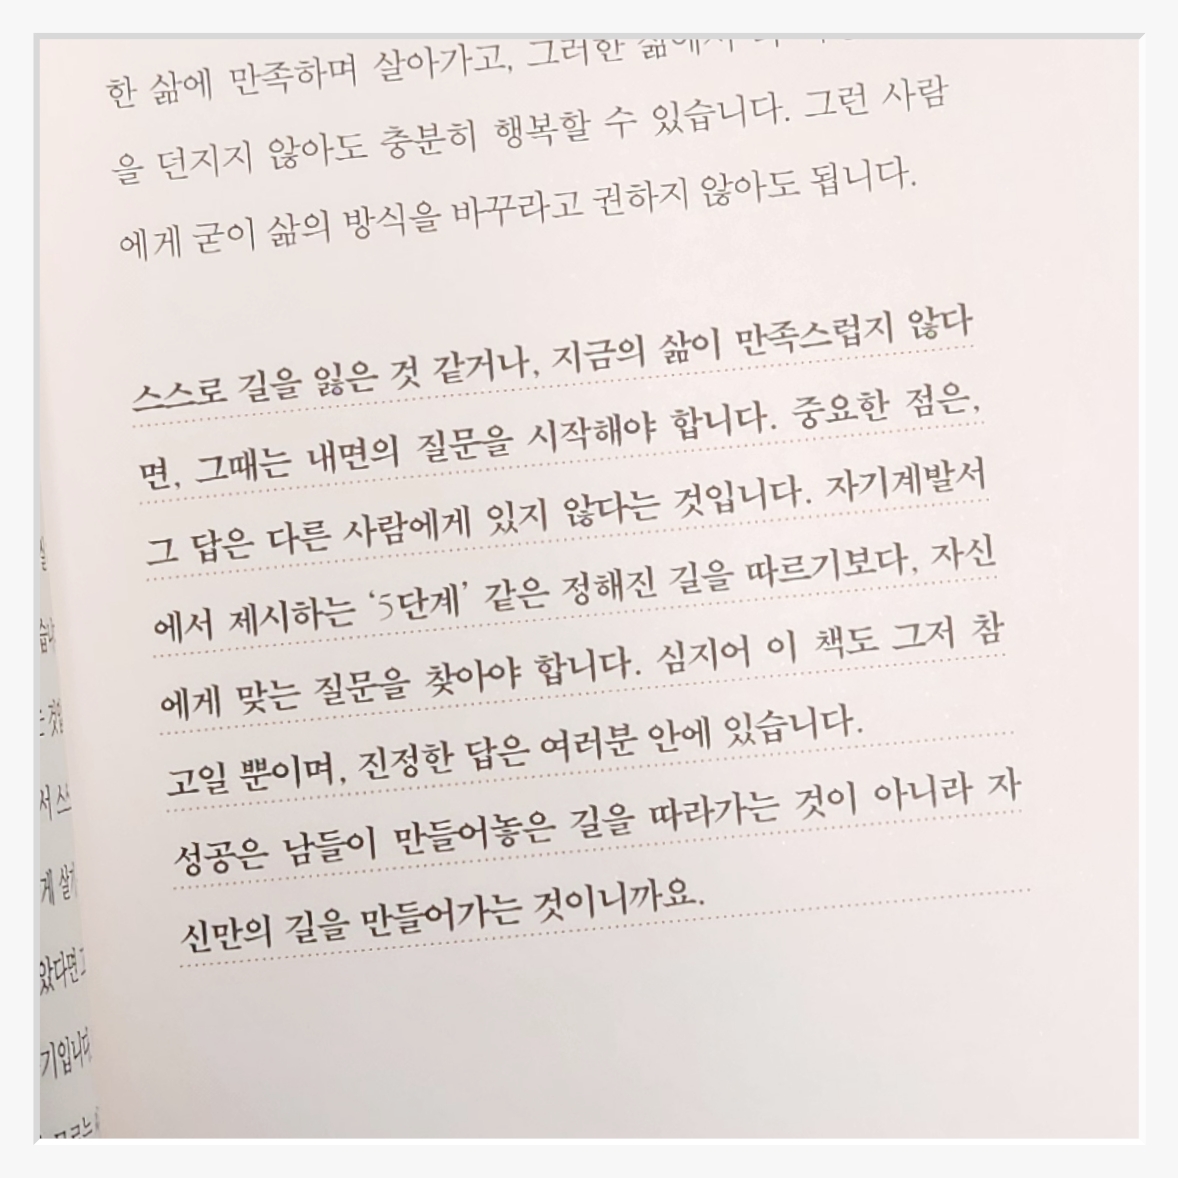 한 삶에 만족하며 살아가고, 그러한 삶에서
을 던지지 않아도 충분히 행복할 수 있습니다. 그런 사람
에게 굳이 삶의 방식을 바꾸라고 권하지 않아도 됩니다.
스스로 길을 잃은 것 같거나, 지금의 삶이 만족스럽지 않다
면, 그때는 내면의 질문을 시작해야 합니다. 중요한 점은,
그 답은 다른 사람에게 있지 않다는 것입니다. 자기계발서
에서 제시하는 ‘5단계’ 같은 정해진 길을 따르기보다, 자신
에게 맞는 질문을 찾아야 합니다. 심지어 이 책도 그저 참
고일 뿐이며, 진정한 답은 여러분 안에 있습니다.
성공은 남들이 만들어놓은 길을 따라가는 것이 아니라 자
신만의 길을 만들어가는 것이니까요.